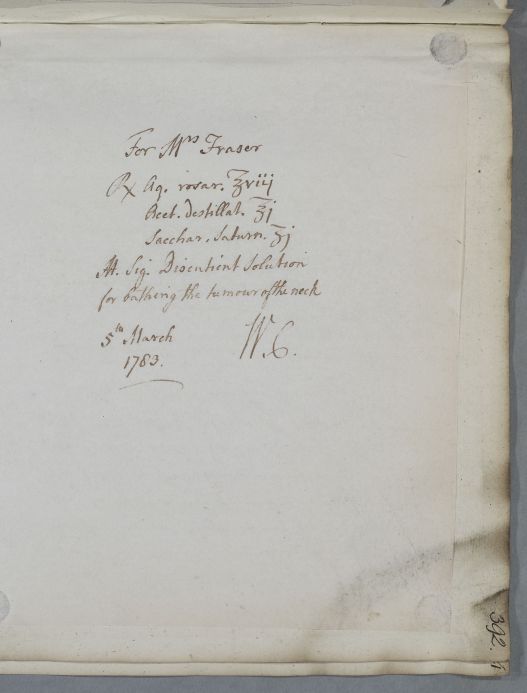 For Mrs Fraser
℞ Aq. rosar. ℥viij
Acet. destillat. ℥j
Sacchar. Saturn. ʒj
M. Sig. Discutient Solution
for bathing the tumour of the neck
5th March
1783.
W. C.
392. 4